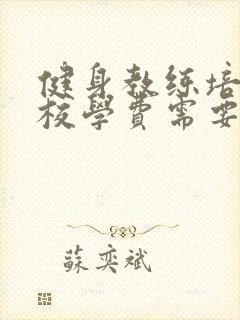 健身教练培
校學費需要
蘇奕斌